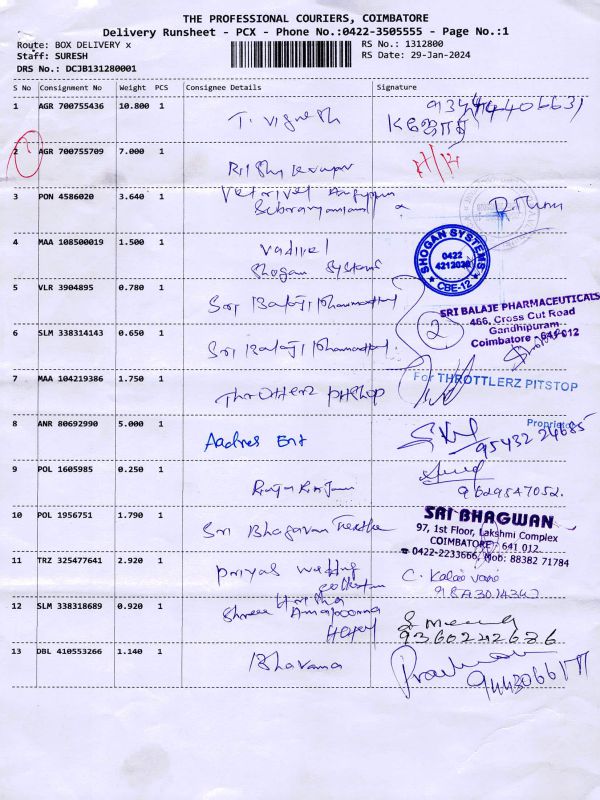 THE PROFESSIONAL COURIERS, COIMBATORE
Delivery Runsheet - PCX - Phone No.:0422-3505555 - Page No.:1
Route: BOX DELIVERY x
RS No.: 1312800
Staff: SURESH
RS Date: 29-Jan-2024
DRS No.: DCJB131280001
S No Consignment No Weight PCS Consignee Details Signature
1 AGR 700755436 10.800 1 T. Vignesh
2 AGR 700755709 7.000 1
3 PON 4586020 3.640 1 Vetrivel
4 MAA 108500019 1.500 1 Vadivel
Shogan Systems
SHOGAN SYSTEMS
0422
CBE-12
5 VLR 3904895 0.780 1 Sri Balaji
SRI BALAJE PHARMACEUTICALS
466, Cross Cut Road
Gandhipuram
Coimbatore - 641 012
2
6 SLM 338314143 0.650 1 Sri Balaji
7 MAA 104219386 1.750 1 Throtterz
For THROTTLERZ PITSTOP
Proprietor
8 ANR 80692990 5.000 1 Aadhres Ent
95432 24685
9 POL 1605985 0.250 1
9629547052.
10 POL 1956751 1.790 1 Sri Bhagavan
SRI BHAGWAN
97, 1st Floor, Lakshmi Complex
COIMBATORE - 641 012
0422-2233666, Mob: 88382 71784
11 TRZ 325477641 2.920 1 Priyas wedding
collection
C. Kalai
12 SLM 338318689 0.920 1 Shree
Annapoorna
Hotel
9360242686
13 DBL 410553266 1.140 1 Bhavana